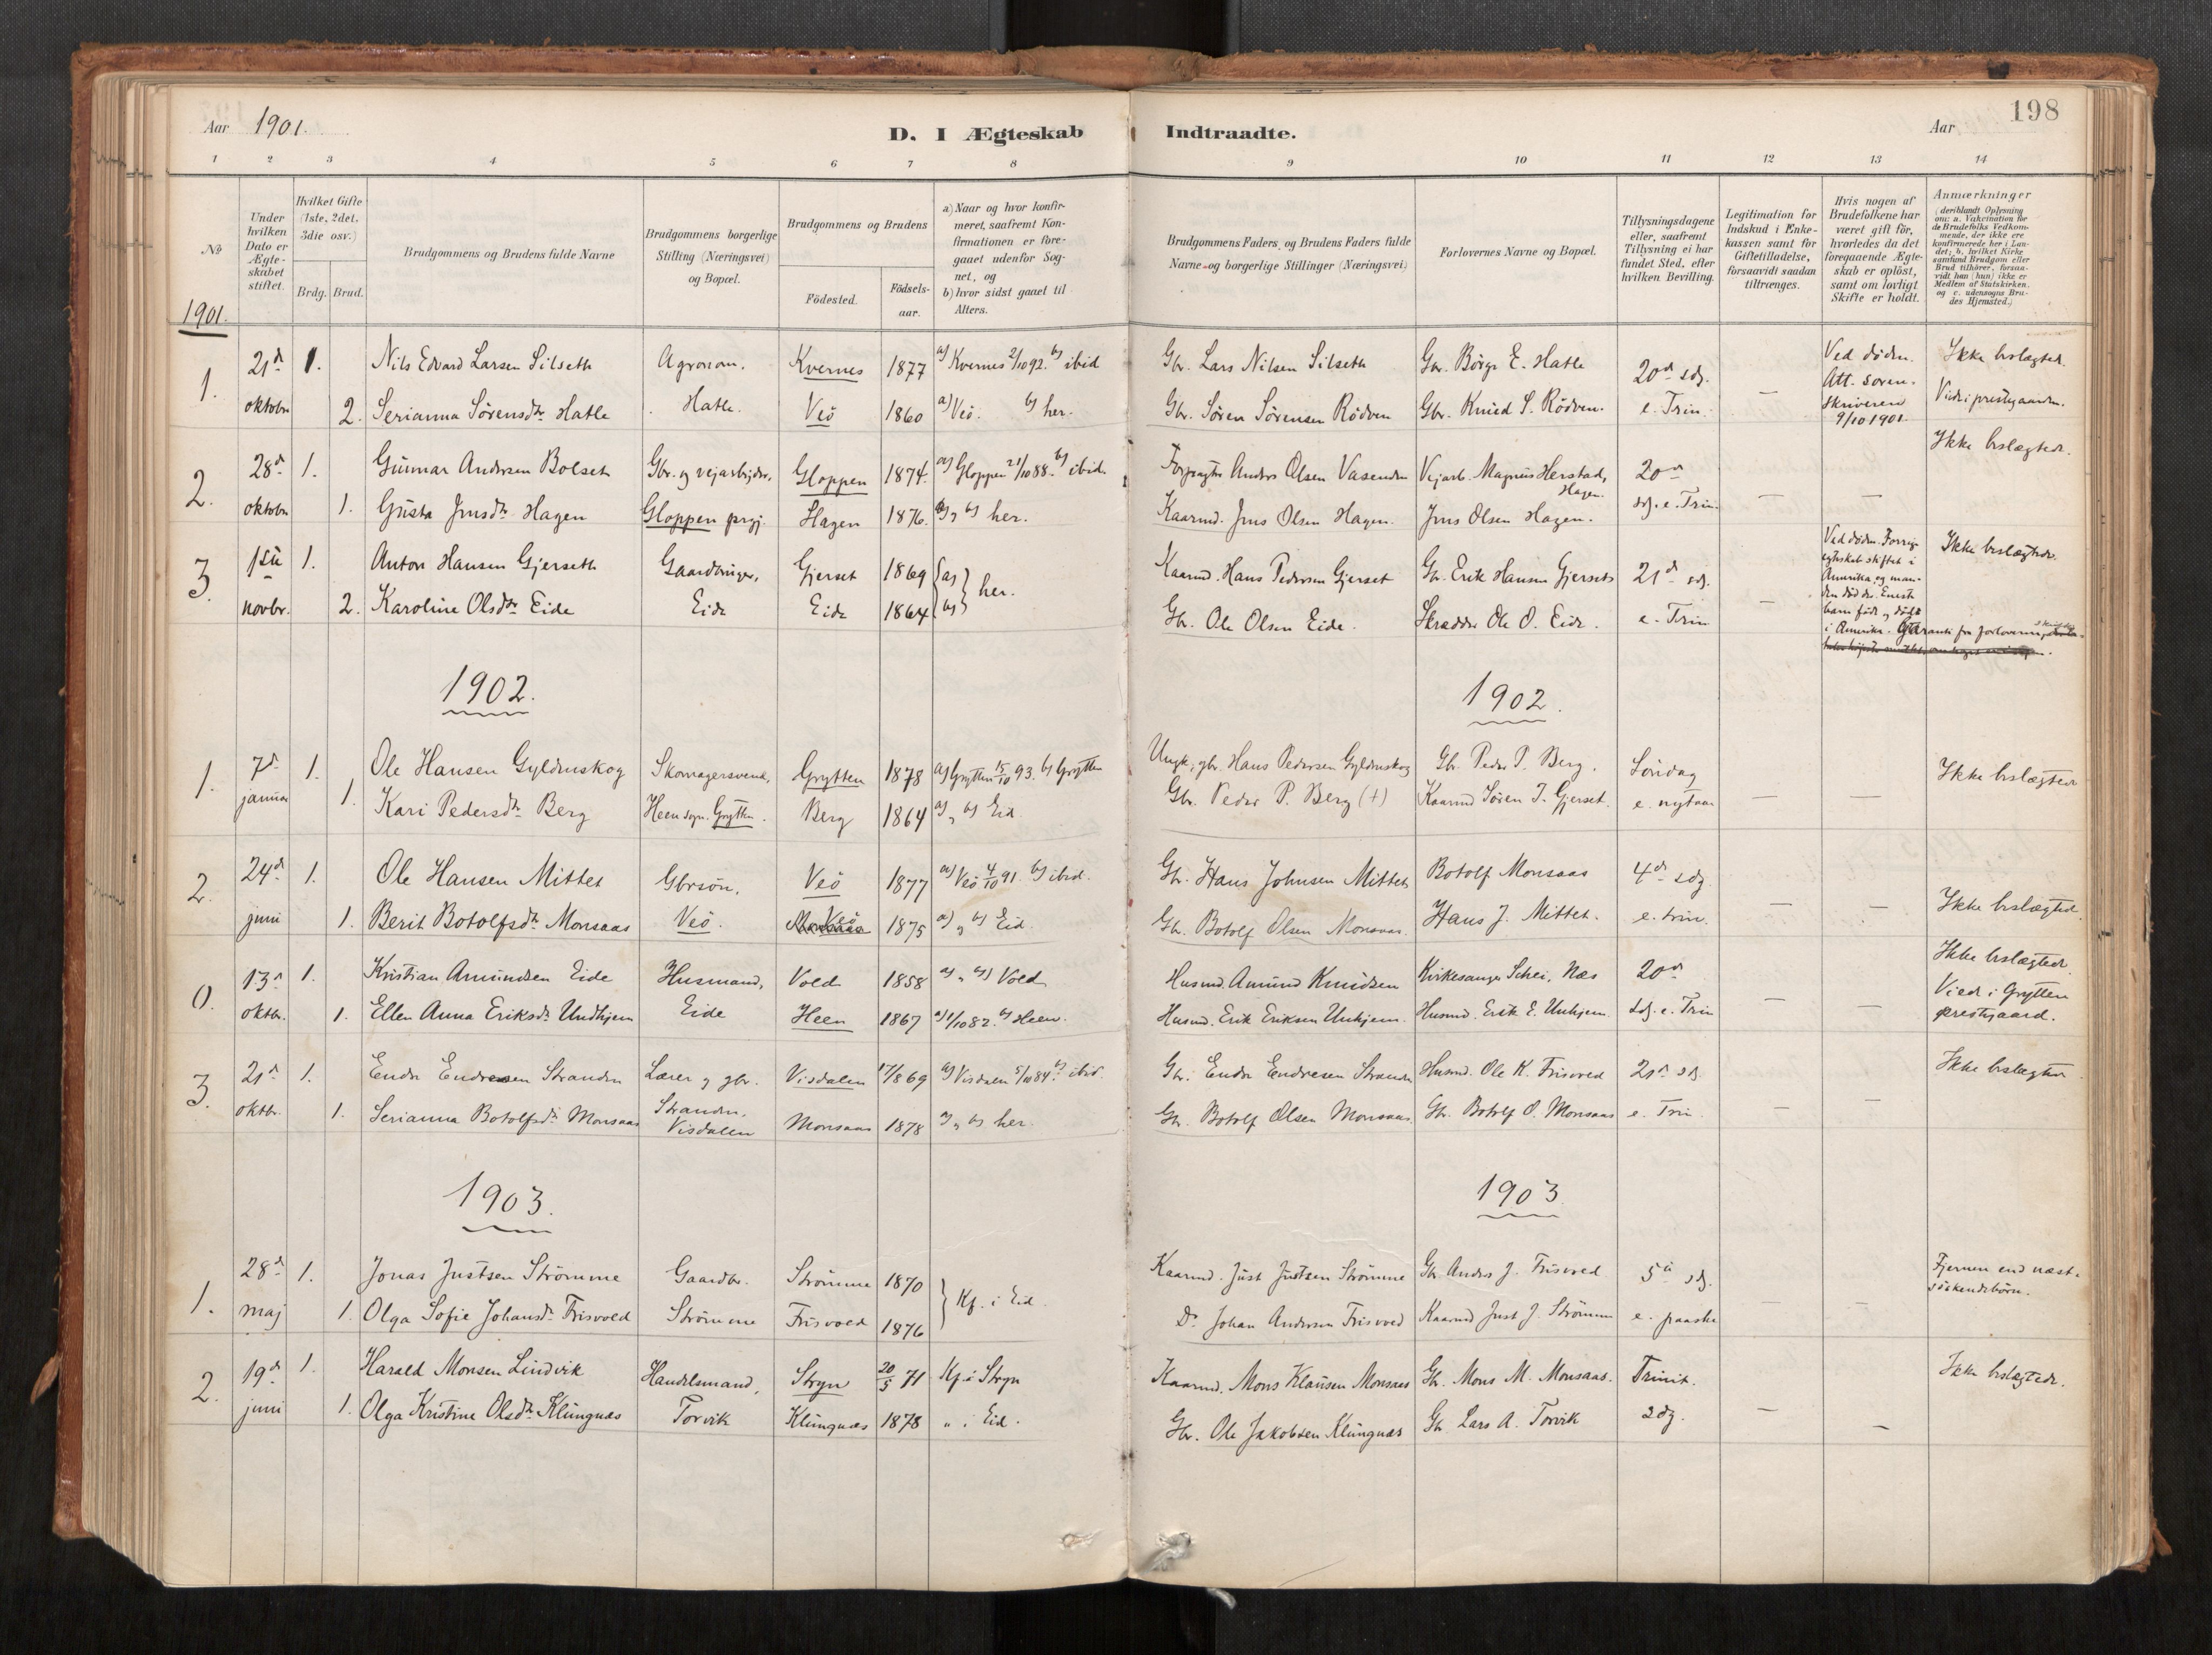 198
Aar 1901.
D. I Ægteskab Indtraadte.
Aar
1 2 3 4 5 6 7 8 9 10 11 12 13 14
№
Under hvilken Dato er Ægteskabet stiftet.
Hvilket Gifte (1ste, 2det, 3die osv.)
Brdg. Brud.
Brudgommens og Brudens fulde Navne
Brudgommens borgerlige Stilling (Næringsvei) og Bopæl.
Brudgommens og Brudens
Födested.
Födselsaar.
a) Naar og hvor konfirmeret, saafremt Konfirmationen er foregaaet udenfor Sognet, og
b) hvor sidst gaaet til Alters.
Brudgommens Faders og Brudens Faders fulde Navne og borgerlige Stillinger (Næringsvei)
Forlovernes Navne og Bopæl.
Tillysningsdagene eller, saafremt Tillysning ei har fundet Sted, efter hvilken Bevilling.
Legitimation for Indskud i Enkekassen samt for Giftetilladelse, forsaavidt saadan tiltrænges.
Hvis nogen af Brudefolkene har været gift för, hvorledes da det foregaaende Ægteskab er oplöst, samt om lovligt Skifte er holdt.
Anmærkninger (deriblandt Oplysning om: a. Vakcination for de Brudefolks Vedkommende, der ikke ere konfirmerede her i Landet; b. hvilket Kirkesamfund Brudgom eller Brud tilhörer, forsaavidt han (hun) ikke er Medlem af Statskirken. og c. udensogns Brudes Hjemsted.)
1901.
1. 21d 1. Nils Edvard Larsen Silseth Agronom. Kvernes 1877 a) Kvernes 2/10 92. b) ibid Gbr. Lars Nilsen Silseth Gbr. Börge E. Hatle 20d sdg. — Ved döden. Ikke beslægted.
oktober 2. Serianna Sörensdtr Hatle Hatle. Veö 1860 a) Veö. b) her. Gbr. Sören Sörensen Rödven Gbr. Knud S. Rödven. e. Trin. Att. soren-skriveren 9/10 1901. Viede i prestegaarden.
2. 28d 1. Gunnar Andersen Bolset Gbr. og vejarbejder, Gloppen 1874. a) Gloppen 21/10 88. b) ibid. Anders Olsen Vasenden Vejarb. Magnus Herstad, Hagen. 20d — — Ikke beslægtede.
oktober 1. Gusta Jensdtr Hagen Gloppen prgj. Hagen 1876. a) „ b) her. Kaarmd. Jens Olsen Hagen. Jens Olsen Hagen. sdg. e. Trin.
3. 1ste 1. Anton Hansen Gjerseth Gaardbruger, Gjerset 1869 a) Kaarmd. Hans Pedersen Gjerset Gbr. Erik Hansen Gjerset 21d sdg. — Ved döden. Forrige egteskab stiftet i Amerika, og manden död der. Eneste barn födt og död i Amerika. Ikke beslægtede.
novbr. 2. Karoline Olsdtr Eide Eide Eide 1864 b) her. Gbr. Ole Olsen Eide. Skrædder Ole O. Eide. e. Trin
1902. 1902.
1. 7d 1. Ole Hansen Gyldenskog Skomagersvend, Grytten 1878 a) Grytten 15/10 93. b) Grytten Ungk., gbr. Hans Pedersen Gyldenskog Gbr. Peder P. Berg. Söndag — — Ikke beslægtede
januar 1. Kari Pedersdtr Berg Heen sogn. Grytten. Berg 1864 a) „ b) Eid. Gbr. Peder P. Berg (+) Kaarmd Sören J. Gjerset. e. nytaar
2. 24d 1. Ole Hansen Mittet Gbrsön, Veö 1877 a) Veö 4/10 91. b) ibid. Gbr. Hans Johnsen Mittet Botolf Monsaas 4d sdg — — Ikke beslægted.
juni 1. Berit Botolfsdtr Monsaas Veö. Veö 1875 a) „ b) Eid. Gbr. Botolf Olsen Monsaas. Hans J. Mittet. e. trin.
0. 13d 1. Kristian Amundsen Eide Husmand, Vold 1858 a) „ b) Vold Husmd. Amund Knudsen Kirkesanger Schei, Næs 20d — — Ikke beslægtede.
oktbr. 1. Ellen Anna Eriksdtr Undhjem Eide Heen 1867 a) 1/10 82. b) Heen. Husmd. Erik Eriksen Unhjem. Husmd. Erik E. Unhjem. sdg. e. Trin Viede i Grytten prestegaard.
3. 21d 1. Endre Endresen Stranden Lærer og gbr. Visdalen 17/8 69 a) Visdalen 5/10 84. b) ibid. Gbr. Endre Endresen Stranden Husmd. Ole K. Frisvold 21d sdg. — — Ikke beslægtede.
oktbr. 1. Serianna Botolfsdtr Monsaas Stranden, Visdalen Monsaas 1878 a) „ b) her. Gbr. Botolf Olsen Monsaas. Gbr. Botolf O. Monsaas e. Trin.
1903. 1903.
1. 28d 1. Jonas Justsen Strömme Gaardbr. Strömme 1870 Kf. i Eid. Kaarmd. Just Justsen Strömme Gbr. Anders J. Frisvold 5te sdg. — — Fjernere end næst-söskendebörn.
maj 1. Olga Sofie Johansdtr Frisvold Strömme Frisvold 1876 Do. Johan Andersen Frisvold Kaarmd Just J. Strömme e. paaske
2. 19d 1. Harald Monsen Lindvik Handelsmand, Stryn 20/5 71 Kf. i Stryn Kaarmd. Mons Klausen Monsaas Gbr. Mons M. Monsaas. Trinit. — — Ikke beslægtede.
juni 1. Olga Kristine Olsdtr Klungnæs Torvik Klungnæs 1878 „ i Eid. Gbr. Ole Jakobsen Klungnæs Gbr. Lars A. Torvik sdg.